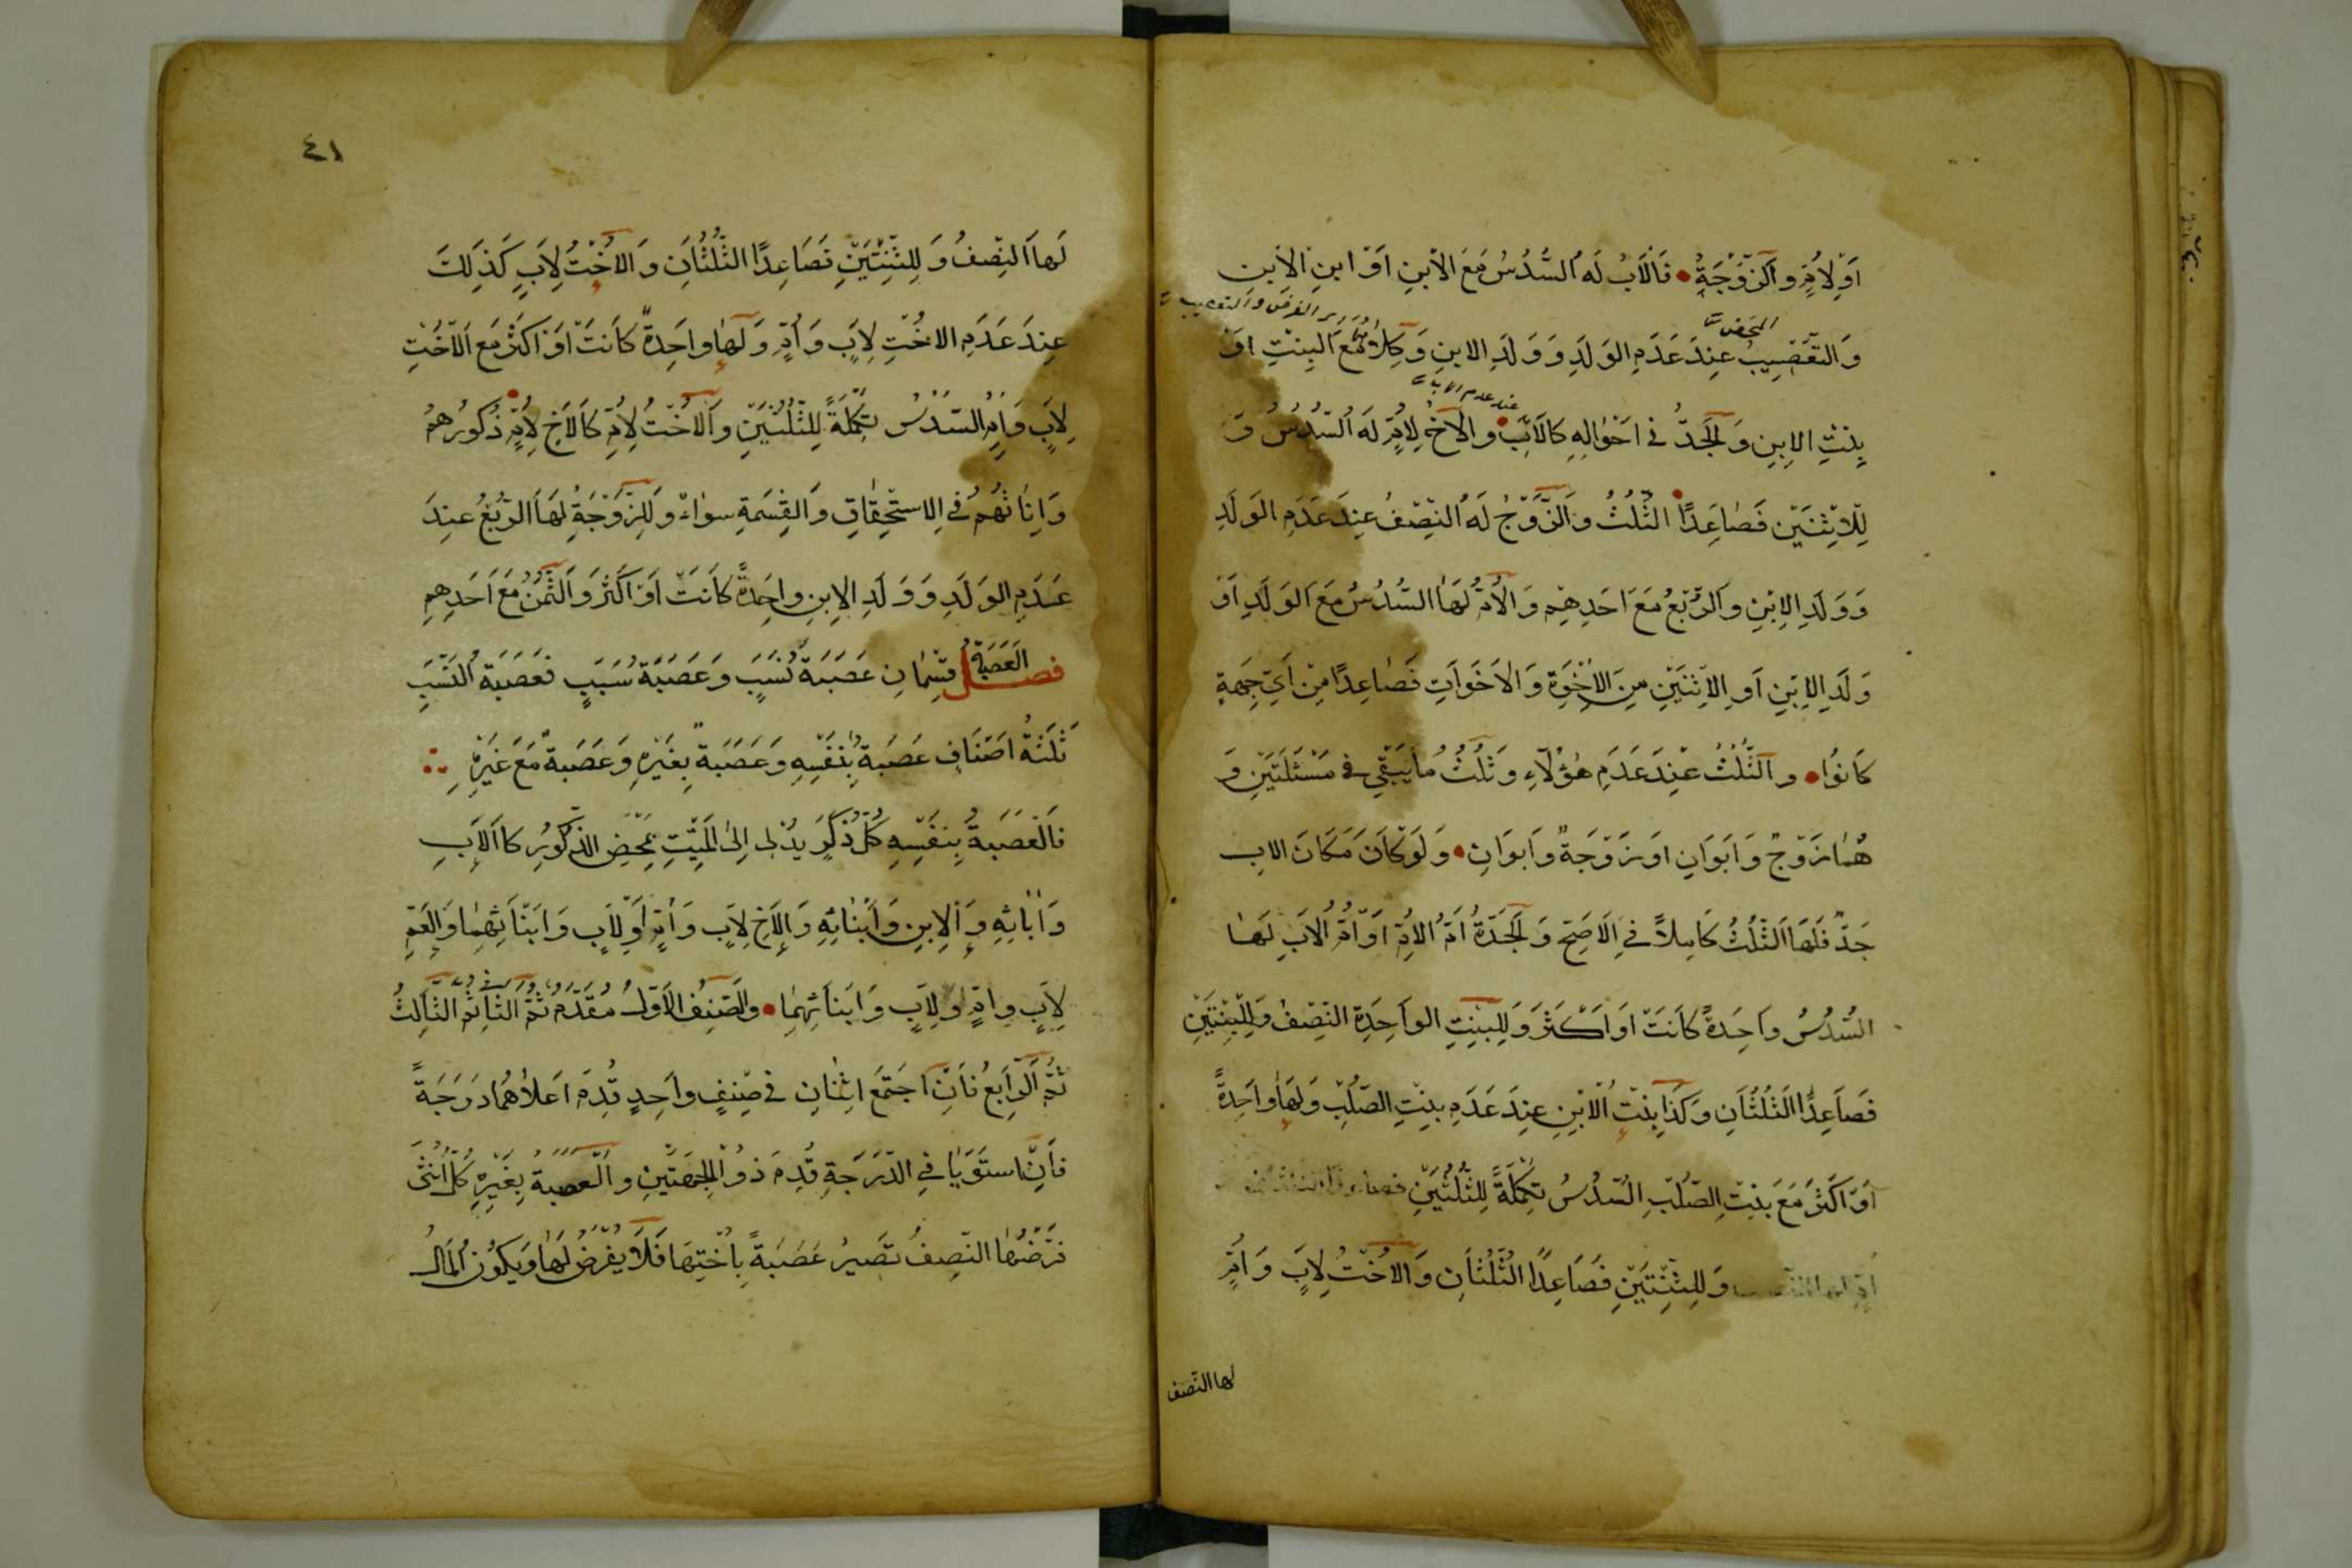 اَوْلِاُمٍّ وَالزَّوْجَةُ • فَالْاَبُ لَهُ السُّدُسُ مَعَ الْاِبْنِ اَوْ ابْنِ الْاِبْنِ
الفرض والتعصيب
المحض
وَالتَّعْصِيبُ عِنْدَ عَدَمِ الوَلَدِ وَوَلَدِ الابنِ وَكِلَاهُمَا مَعَ الْبِنْتِ اَوْ
عند عدم الاب
بِنْتِ الِابنِ وَالْجَدُّ فى اَحْوَالِهِ كَالْاَبِ • وَالْاَخُ لِاُمٍّ لَهُ السُّدُسُ وَ
لِلْاِثْنَيْنِ فَصَاعِدًا الثُّلُثُ وَالزَّوْجُ لَهُ النِّصْفُ عِنْدَ عَدَمِ الوَلَدِ
وَوَلَدِ الِابْنِ وَالرُّبْعُ مَعَ اَحَدِهِمِ وَالْاُمُّ لَهَا السُّدُسُ مَعَ الوَلَدِ اَوْ
وَلَدِ الِابْنِ اَوِ الِاثْنَيْنِ مِنَ الْاِخْوَةِ وَالْاَخَوَاتِ فَصَاعِدًا مِنْ اَىِّ جِهَةٍ
كَانُوا • والثُّلُثُ عِنْدَ عَدَمِ هٰؤُلَاءِ وَثُلُثُ مَا يَبْقٰى فى مَسْئَلَتَيْنِ وَ
هُمَا زَوْجٌ وَاَبَوَانِ اَوْ زَوْجَةٌ وَاَبَوَانِ • وَلَوْ كَانَ مَكَانَ الاب
جَدٌّ فَلَهَا الثُّلُثُ كَامِلاً فِى الْاَصَحِّ وَالْجَدَّةُ اُمُّ الْاُمِّ اَوْ اُمُّ الْاَبِ لَهَا
السُّدُسُ وَاحِدَةً كَانَتْ اَوْ اَكْثَرَ وَلِلْبِنْتِ الوَاحِدَةِ النِّصْفُ وَلِلْبِنْتَيْنِ
فَصَاعِدًا الثُّلُثَانِ وَكَذَا بِنْتُ الْاِبْنِ عِنْدَ عَدَمِ بِنْتِ الصُّلْبِ وَلَهَا وَاحِدَةً
اَوْ اَكْثَرَ مَعَ بِنْتِ الصُّلْبِ السُّدُسُ تَكْمِلَةً لِلثُّلُثَيْنِ
وَلِلثِّنْتَيْنِ فَصَاعِدًا الثُّلُثَانِ وَالْاُخْتُ لِاَبٍ وَاُمٍّ
لها النّصف
٤١
لَهَا النِّصْفُ وَلِلثِّنْتَيْنِ فَصَاعِدًا الثُّلُثَانِ وَالْاُخْتُ لِاَبٍ كَذَلِكَ
عِنْدَ عَدَمِ الاُخْتِ لِاَبٍ وَاُمٍّ وَلَهَا وَاحِدَةً كَانَتْ اَوْ اَكْثَرَ مَعَ الْاُخْتِ
لِاَبٍ وَاُمٍّ السُّدُسُ تَكْمِلَةً لِلثُّلُثَيْنِ وَالْاُخْتُ لِاُمٍّ كَالْاَخِ لِاُمٍّ ذُكُورُهُمْ
وَاِنَاثُهُمْ فِى الِاسْتِحْقَاقِ وَالْقِسْمَةِ سَوَاءٌ وَلِلزَّوْجَةِ لَهَا الرُّبْعُ عِنْدَ
عَدَمِ الوَلَدِ وَوَلَدِ الِابْنِ وَاحِدَةً كَانَتْ اَوْ اَكْثَرَ وَالثُّمُنُ مَعَ اَحَدِهِمِ
فصل العَصَبَةُ قِسْمَانِ عَصَبَةُ نَسَبٍ وَعَصَبَةُ سَبَبٍ فَعَصَبَةُ النَّسَبِ
ثَلَثَةُ اَصْنَافٍ عَصَبَةٌ بِنَفْسِهِ وَعَصَبَةٌ بِغَيْرِهِ وَعَصَبَةٌ مَعَ غَيْرِهِ
فَالْعَصَبَةُ بِنَفْسِهِ كُلُّ ذَكَرٍ يُدْلِى اِلَى الْمَيِّتِ بِمَحْضِ الذُّكُورِ كَالْاَبِ
وَاٰبَائِهِ وَالِابْنِ وَاَبْنَائِهِ وَالْاَخِ لِاَبٍ وَاُمٍّ اَوْ لِاَبٍ وَاَبْنَائِهِمَا وَالْعَمِّ
لِاَبٍ وَاُمٍّ اَوْ لِاَبٍ وَاَبْنَائِهِمَا • والصِّنْفُ الْاَوَّلُ مُقَدَّمٌ ثُمَّ الثَّانِى ثُمَّ الثَّالِثُ
ثُمَّ الرَّابِعُ فَاِنِ اجْتَمَعَ اثْنَانِ فى صِنْفٍ وَاحِدٍ قُدِّمَ اَعْلَاهُمَا دَرَجَةً
فَاِنِ اسْتَوَيَا فِى الدَّرَجَةِ قُدِّمَ ذُو الْجِهَتَيْنِ وَالْعَصَبَةُ بِغَيْرِهِ كُلُّ اُنْثٰى
فَرْضُهَا النِّصْفُ تَصِيرُ عَصَبَةً بِاُخْتِهَا فَلَا يُفْرَضُ لَهَا وَيَكُونُ الْمَالُ